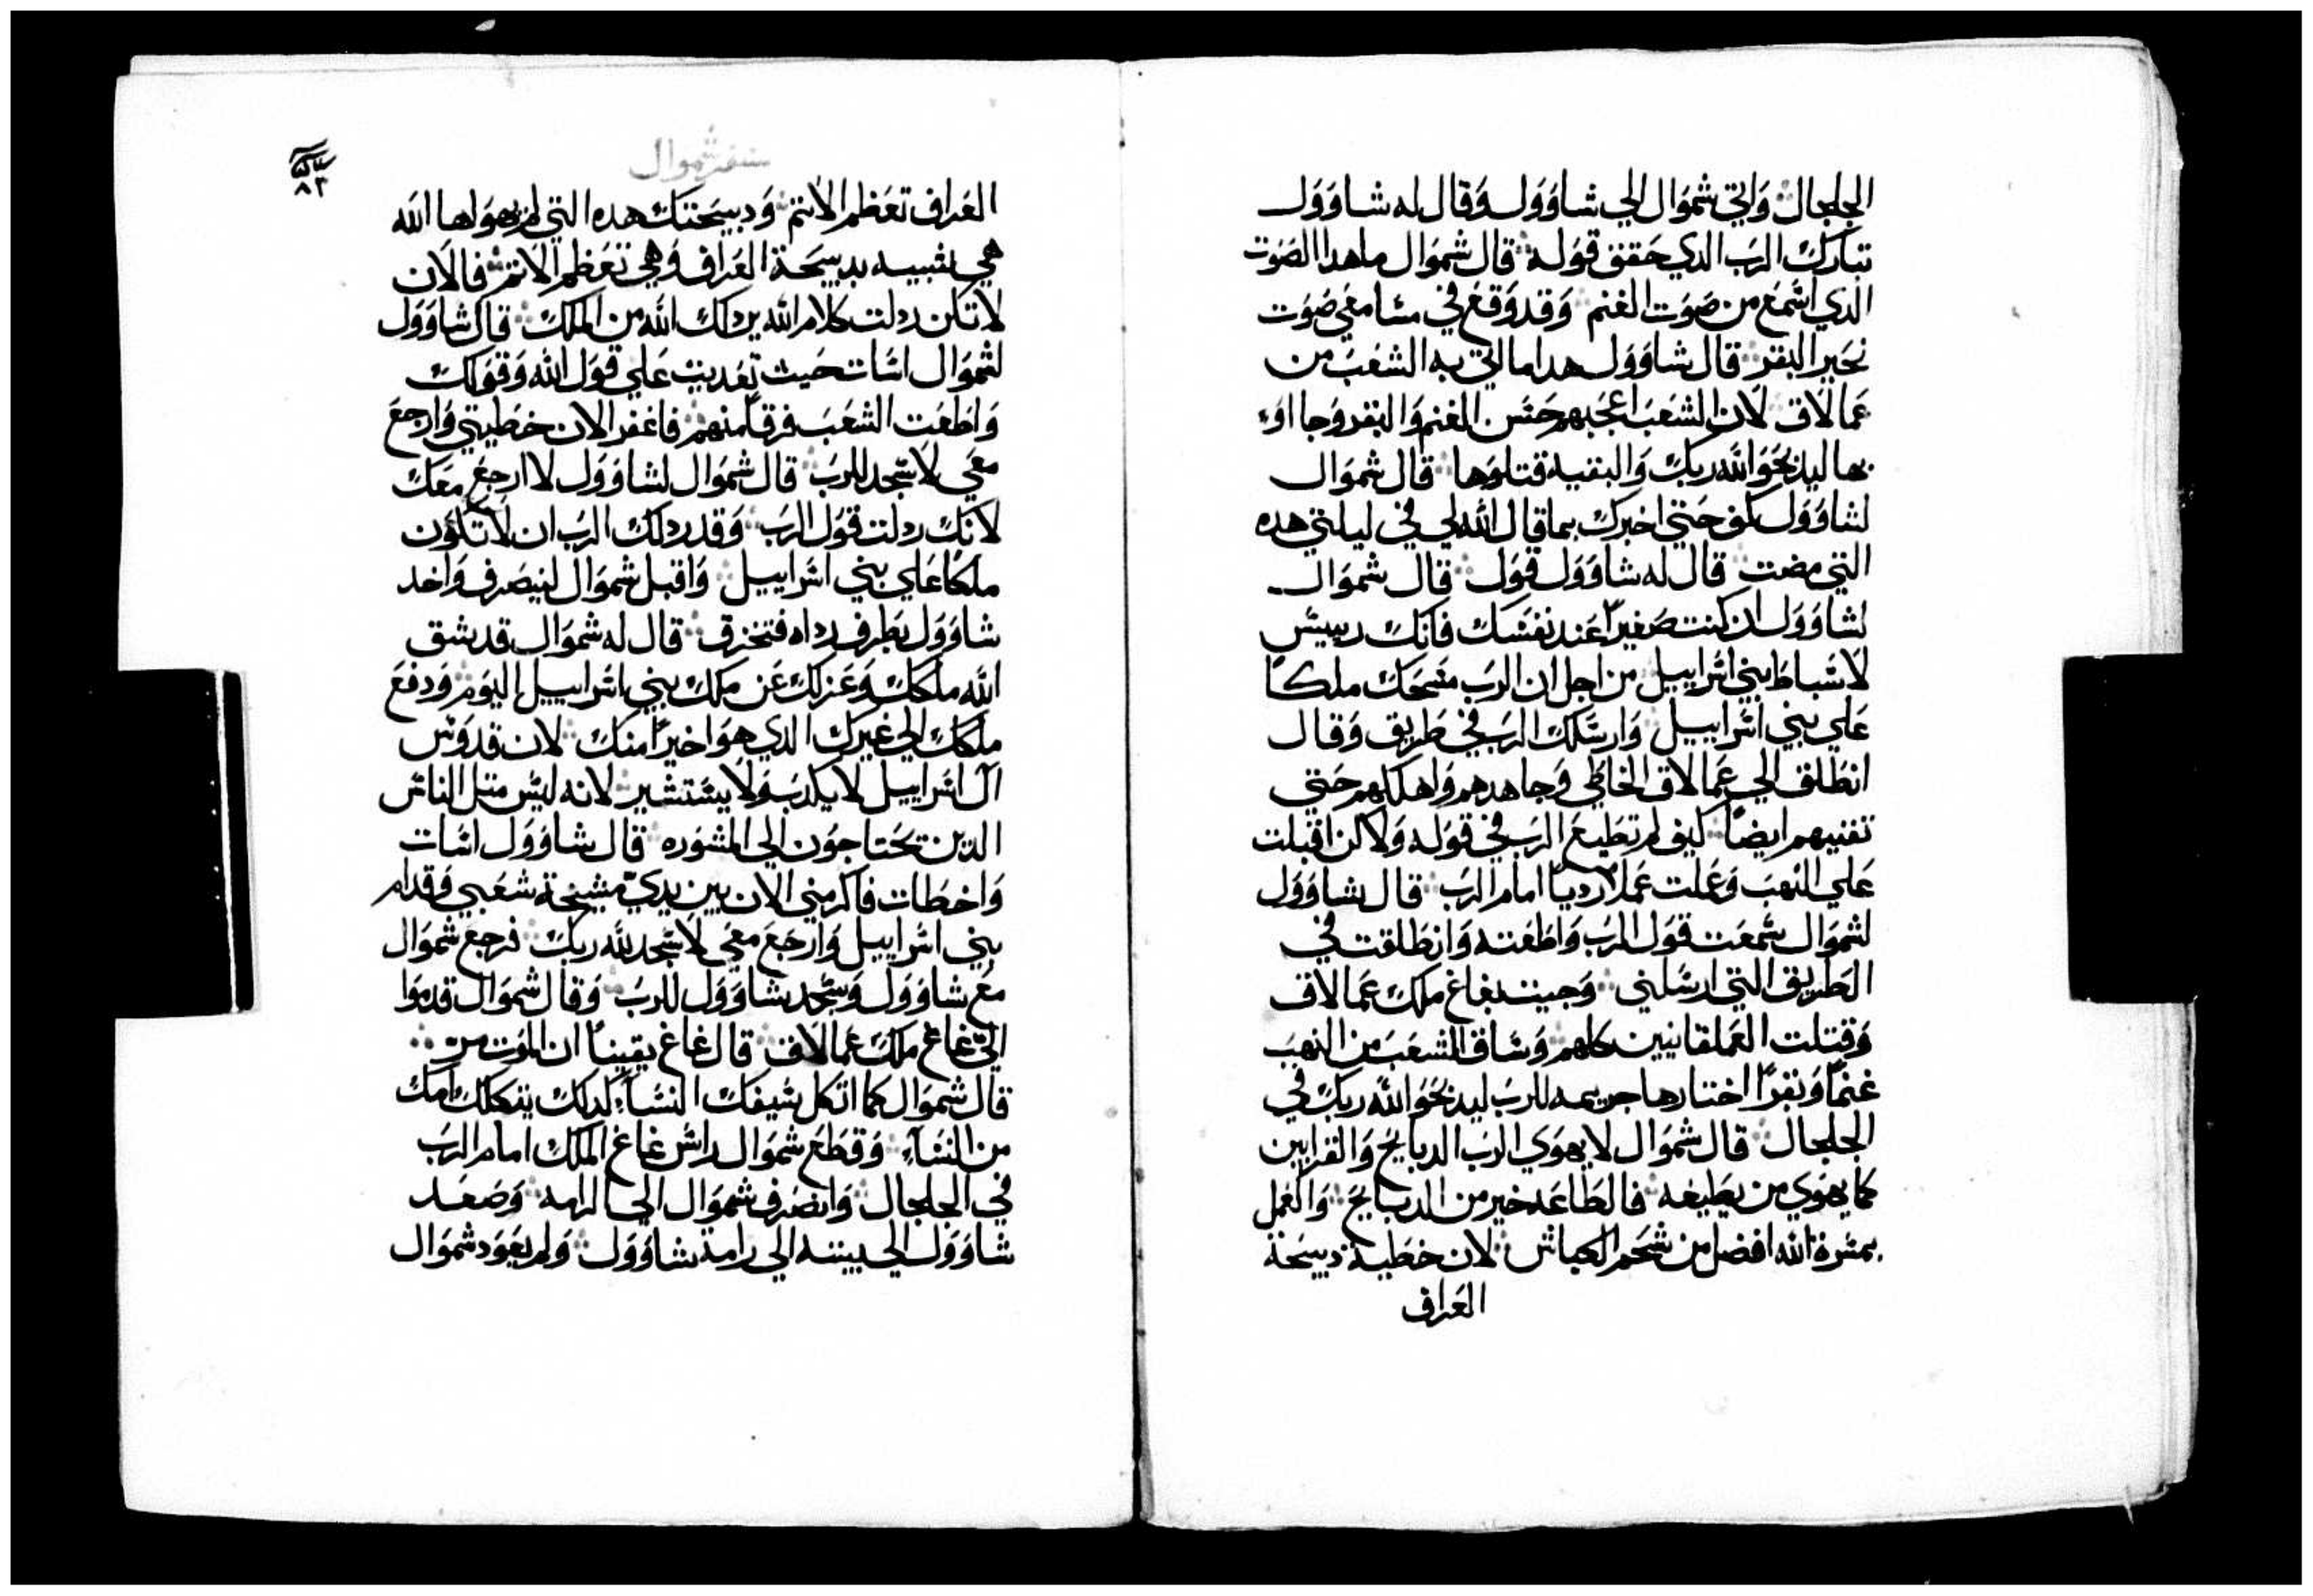 الجلجال وَاتي شموَال الي شاوَوَل وَقال له شاوَوَل
تبارك الرَب الدي حَقق قوَله قال شموَال ما هدا الصَوَت
الدي اسَمعَ من صَوَت الغنم وَقد وَقعَ في مسَامعَي صَوَت
نحَير البقر قال شاوَوَل هدا ما اتي به الشعَب من
عَمالاق لان الشعَب اعَجبهم حَسَن الغنم وَالبقر وَجااوَا
بها ليدبحَوَا لله ربك وَالبقيه قتلوَها قال شموَال
لشاوَوَل كف حَتي اخبرك بما قال الله لي في ليلتي هده
التي مضت قال له شاوَوَل قوَل قال شموَال
لشاوَوَل ان كنت صَغيرًا عَند نفسَك فانك رييسَ
لاسَباط بني اسَراييل من اجل ان الرَب مسَحَك ملكًا
عَلي بني اسَراييل وَارسَلك الرَب في طَريق وَقال
انطَلق الي عَمالاق الخاطَي وَجاهدهم وَاهلكهم حَتي
تفنيهم ايضًا كيف لم تطَيعَ الرَب في قوَله وَلاكن اقبلت
عَلي النهب وَعَملت عَملاً رديًا امام الرَب قال شاوَوَل
لشموَال سَمعَت قوَل الرَب وَاطَعَته وَانطَلقت في
الطَريق التي ارسَلني وَجيت بغاغ ملك عَمالاق
وَقتلت العَملقانيين كلهم وَسَاق الشعَب من النهب
غنمًا وَبقرًا اختارها حريمه للرب ليدبحَوَا لله ربك في
الجلجال قال شموَال لا يهوَي الرَب الدبايحَ وَالقرابين
كما يهوَي من يطَيعَه فالطَاعَه خير من الدبايحَ وَالعَمل
بمسَرة الله افضل من شحَم الكباش لان خطَية دبيحَة
العَراف
سَفر شموال
٨٣
العَراف تعَظم الاتم وَدبيحَتك هده التي لم يهوَاها الله
هي شبيه بدبيحَة العَراف وَهي تعَظم الاتم فالان
لا تكن ردلت كلام الله يردلك الله من الملك قال شاوَوَل
لشموَال اسَات حَيت تعَديت عَلي قوَل الله وَقوَلك
وَاطَعَت الشعَب فرقًا منهم فاغفر الان خطَيتي وَارجعَ
معَي لاسَجد للرَب قال شموَال لشاوَوَل لا ارجعَ معَك
لانك ردلت قوَل الرَب وَقد ردلك الرَب ان لا تكوَن
ملكًا عَلي بني اسَراييل وَاقبل شموَال لينصَرف وَاخد
شاوَوَل بطَرف رداه فتخزق قال له شموَال قد شق
الله ملكك وَعَزلك عَن ملك بني اسَراييل اليوَم وَدفعَ
ملكك الي غيرك الدي هوَ اخيرًا منك لان قدوَسَ
ال اسَراييل لا يكدب وَلا يسَتشير لانه ليسَ متل الناسَ
الدين يحَتاجوَن الي المشوَره قال شاوَوَل اسَات
وَاخطَات فاكرمني الان بين يديّ مشيخة شعَبي وَقدام
بني اسَراييل وَارجَعَ معَي لاسَجد لله ربك فرجعَ شموَال
معَ شاوَوَل وَسَجد شاوَوَل للرَب وَقال شموَال قدموَا
اليّ غاغ ملك عَمالاق قال غاغ يقينًا ان الموَت مر
قال شموَال كما اتكل سَيفك النسَاء كدلك يتكلك امك
من النسَاءِ وَقطَعَ شموَال راسَ غاغ الملك امام الرَب
في الجلجال وَانصَرف شموَال الي الرامه وَصَعَد
شاوَوَل الي بيته الي رامة شاوَوَل وَلم يعَوَد شموَال